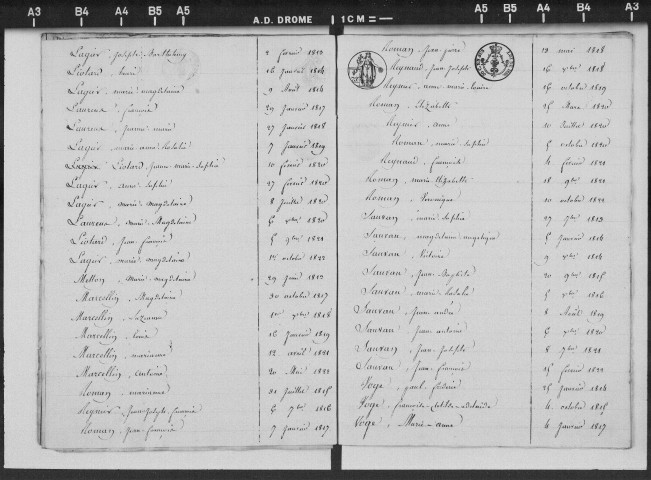 A3 B4 A4 B5 A5 A.D. DROME 1 CM A5 B5 A4 B4 A3
Lagier, Joseph-Barthelemy 2 février 1813
Liotard, 16 Janvier 1814
Lagier, marie magdelaine 9 Août 1814
Laurens, françois 29 Janvier 1817
Laurens, jeanne marie 27 Janvier 1818
Lagier, marie anne 7 Janvier 1819
Liotard, jeanne-marie-Sophie 10 février 1820
Lagier, anne Sophie 27 février 1820
Lagier, marie-magdelaine 8 Juillet 1820
Laurens, marie Magdelaine 1820
Liotard, Jean-françois 1821
Lagier, marie magdelaine 14 octobre 1822
Metton, Marie-magdelaine 29 Juin 1812
Marcellin, Magdelaine 30 octobre 1817
Marcellin, Suzanne 1818
Marcellin, 16 Janvier 1819
Marcellin, marianne 12 avril 1821
Marcellin, Antoine 20 Mai 1822
Roman, marianne 21 Juillet 1815
Reynier, Jean-Joseph-françois 6 7bre 1816
Roman, Jean-françois 7 Janvier 1817
Roman, Jean-pierre 12 mai 1818
Reynaud, Jean-Joseph 1818
Reynier, marie 16 octobre 1819
Roman, Elizabeth 25 Mars 1820
Reynier, anne 10 Juillet 1820
Roman, marie-Sophie 5 octobre 1820
Reynaud, françois 4 février 1821
Roman, marie Elizabeth 18 9bre 1821
Roman, Véronique 10 octobre 1822
Sauvan, marie Sophie 27 7bre 1813
Sauvan, magdelaine angelique 5 Janvier 1814
Sauvan, Victoire 9 1814
Sauvan, Jean-Baptiste 20 9bre 1815
Sauvan, marie 5 1816
Sauvan, Jean andré 8 Août 1819
Sauvan, Jean antoine 5 1820
Sauvan, Jean-Joseph 8 7bre 1821
Sauvan, Jean-françois 15 février 1822
Voge, paul-frédéric 25 Janvier 1814
Voge, Clotilde-adelaide 4 octobre 1815
Voge, Marie-anne 4 Janvier 1817
A3 B4 A4 B5 A5 A5 B5 A4 B4 A3